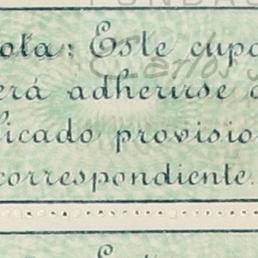 FUNDA
ota: Este cupo
erá adherirse
icado provisio
correspondiente.